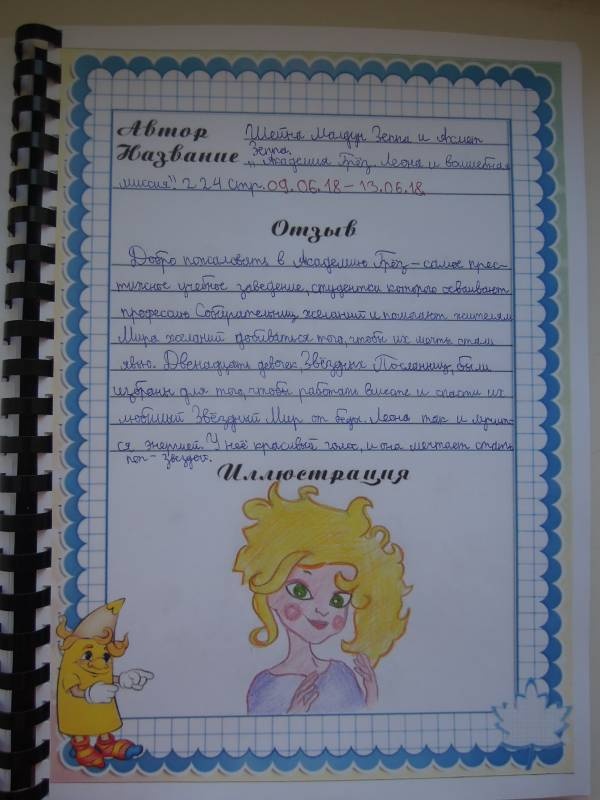 Автор Шейна Малдун Зеппа и Ахмет
Название Зеппа. „Академия Грёз. Леона и волшебная
миссия". 224 стр. 09.06.18 – 13.06.18
Отзыв
Добро пожаловать в Академию Грёз – самое прес-
тижное учебное заведение, студентки которого осваивают
профессию Собирательниц желаний и помогают жителям
Мира желаний добиваться того, чтобы их мечты стали
явью. Двенадцать девочек Звёздных Посланниц, были
избраны для того, чтобы работать вместе и спасти их
любимый Звёздный Мир от беды. Леона так и лучит-
ся энергией. У неё красивый голос, и она мечтает стать
поп - звездой.
Иллюстрация